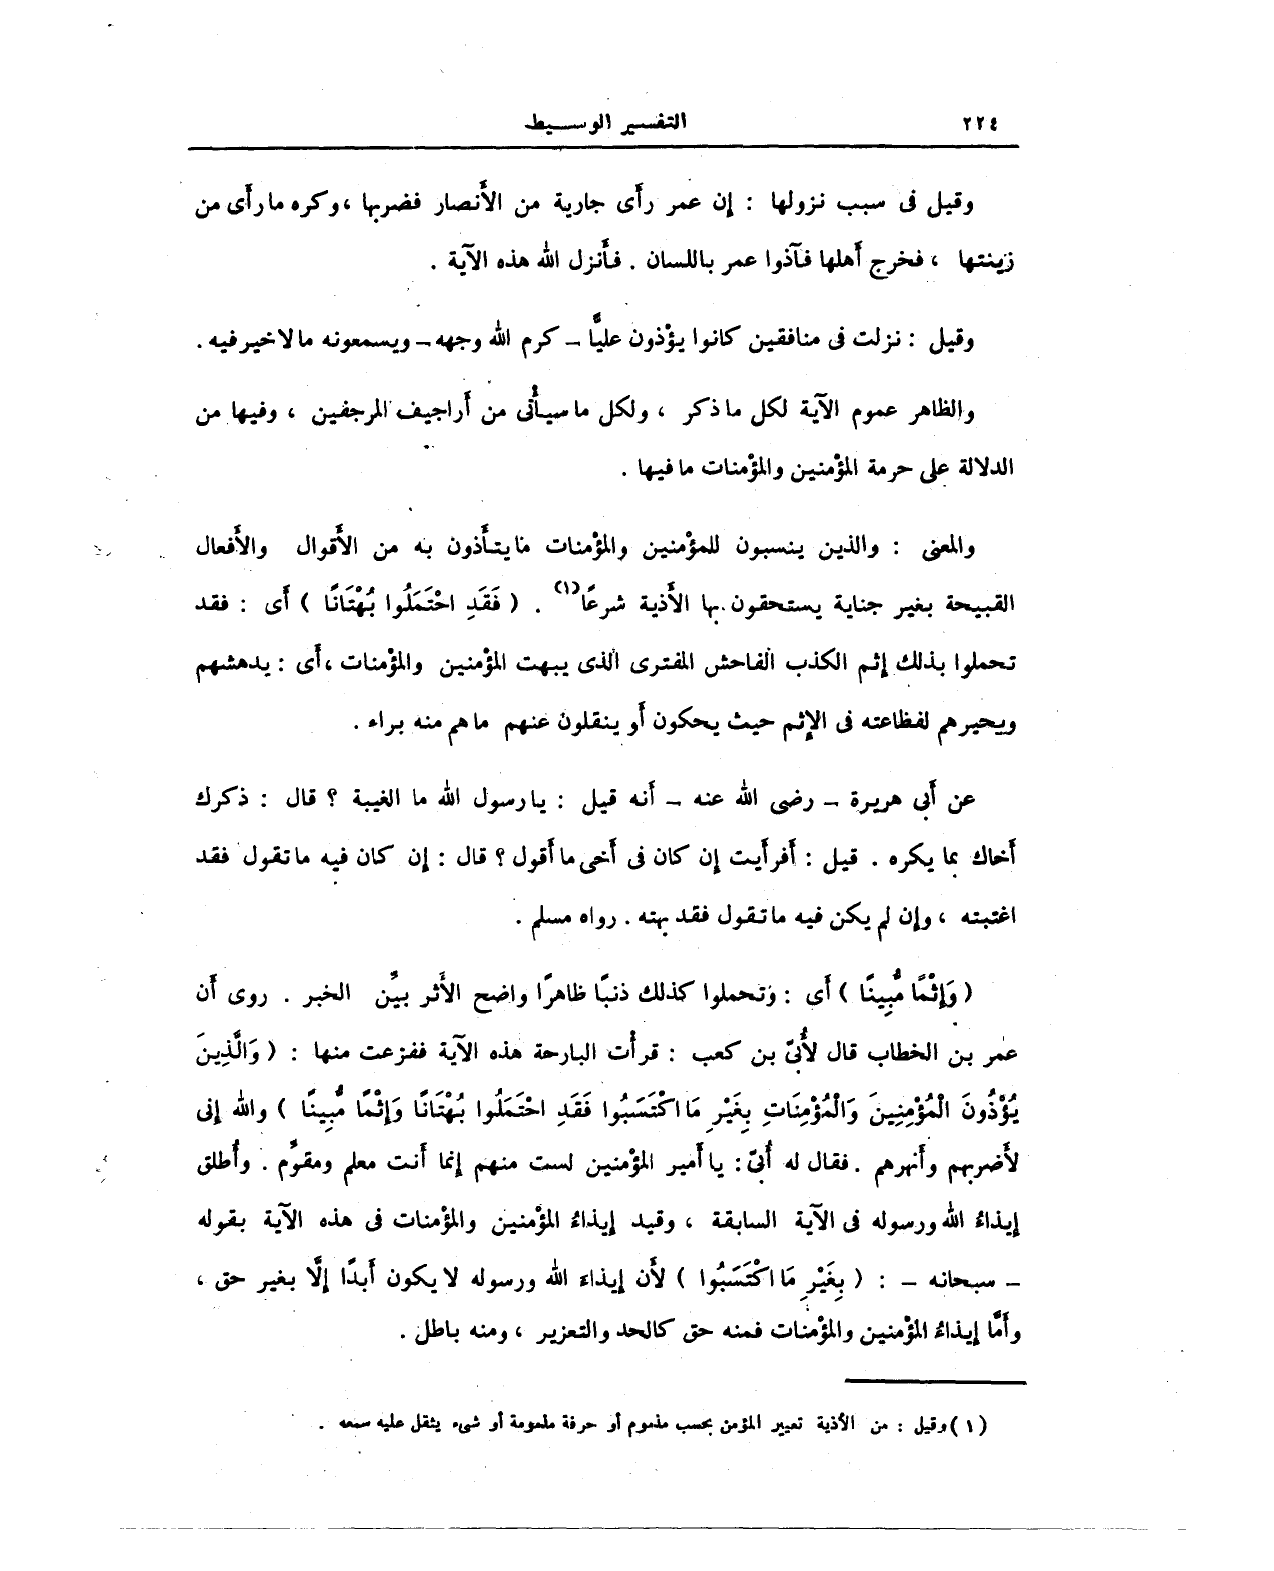 ٢٢٤ التفسير الوسيط
وقيل فى سبب نزولها : إن عمر رأى جارية من الأنصار فضربها ، وكره ما رأى من
زينتها ، فخرج أهلها فآذوا عمر باللسان . فأنزل الله هذه الآية .
وقيل : نزلت فى منافقين كانوا يؤذون عليًّا – كرم الله وجهه – ويسمعونه ما لا خير فيه .
والظاهر عموم الآية لكل ما ذكر ، ولكل ما سيأتى من أراجيف المرجفين ، وفيها من
الدلالة على حرمة المؤمنين والمؤمنات ما فيها .
والمعنى : والذين ينسبون للمؤمنين والمؤمنات ما يتأذون به من الأقوال والأفعال
القبيحة بغير جناية يستحقون بها الأذية شرعًا(١) . ( فَقَدِ احْتَمَلُوا بُهْتَانًا ) أى : فقد
تحملوا بذلك إثم الكذب الفاحش المفترى الذى يبهت المؤمنين والمؤمنات ، أى : يدهشهم
ويحيرهم لفظاعته فى الإثم حيث يحكون أو ينقلون عنهم ما هم منه براء .
عن أبى هريرة – رضى الله عنه – أنه قيل : يا رسول الله ما الغيبة ؟ قال : ذكرك
أخاك بما يكره . قيل : أفرأيت إن كان فى أخى ما أقول ؟ قال : إن كان فيه ما تقول فقد
اغتبته ، وإن لم يكن فيه ما تقول فقد بهته . رواه مسلم .
( وَإِثْمًا مُّبِينًا ) أى : وتحملوا كذلك ذنبًا ظاهرًا واضح الأثر بيِّن الخبر . روى أن
عمر بن الخطاب قال لأُبىّ بن كعب : قرأت البارحة هذه الآية ففزعت منها : ( وَالَّذِينَ
يُؤْذُونَ الْمُؤْمِنِينَ وَالْمُؤْمِنَاتِ بِغَيْرِ مَا اكْتَسَبُوا فَقَدِ احْتَمَلُوا بُهْتَانًا وَإِثْمًا مُّبِينًا ) والله إنى
لأضربهم وأنهرهم . فقال له أُبىّ : يا أمير المؤمنين لست منهم إنما أنت معلم ومقوِّم . وأُطلق
إيذاءُ الله ورسوله فى الآية السابقة ، وقيد إيذاءُ المؤمنين والمؤمنات فى هذه الآية بقوله
– سبحانه – : ( بِغَيْرِ مَا اكْتَسَبُوا ) لأن إيذاء الله ورسوله لا يكون أبدًا إلَّا بغير حق ،
وأمَّا إيذاءُ المؤمنين والمؤمنات فمنه حق كالحد والتعزير ، ومنه باطل .
(١) وقيل : من الأذية تعيير المؤمن بحسب مذموم أو حرفة مذمومة أو شىء يثقل عليه سمعه .